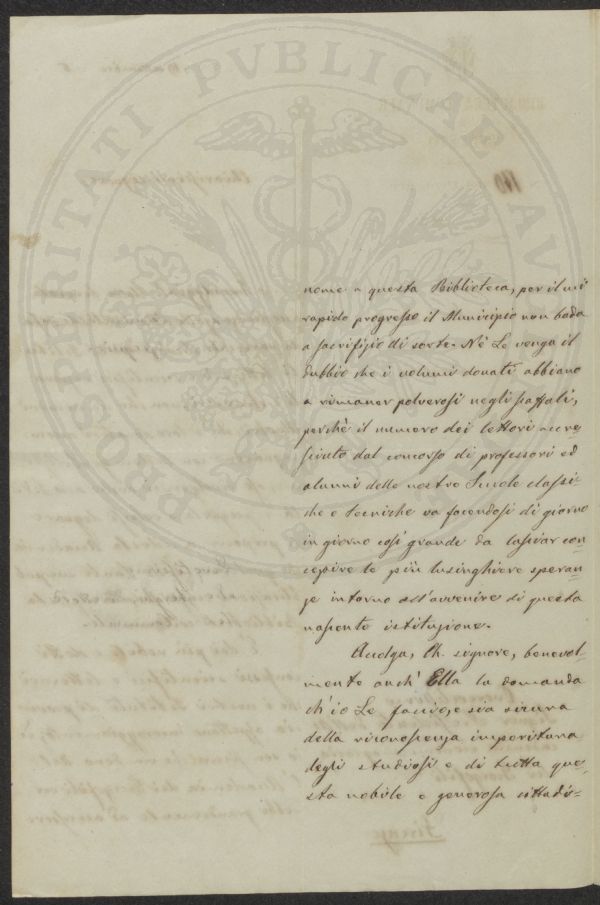 PROSPERITATI PVBLICAE AV
nome a questa Biblioteca, per il cui
rapido progresso il Municipio non bada
a sacrifizio di sorte. Nè Le venga il
dubbio che i volumi donati abbiano
a rimaner polverosi negli scaffali,
perchè il numero dei lettori accre-
sciuto dal concorso di professori ed
alunni delle nostre Scuole classi-
che e tecniche va facendosi di giorno
in giorno così grande da lasciar con-
cepire le più lusinghiere speran-
ze intorno all'avvenire di questa
nascente istituzione.
Accolga, Ch. signore, benevol-
mente anch' Ella la domanda
ch'io Le faccio, e sia sicura
della riconoscenza imperitura
degli studiosi e di tutta que-
sta nobile e generosa cittadi-